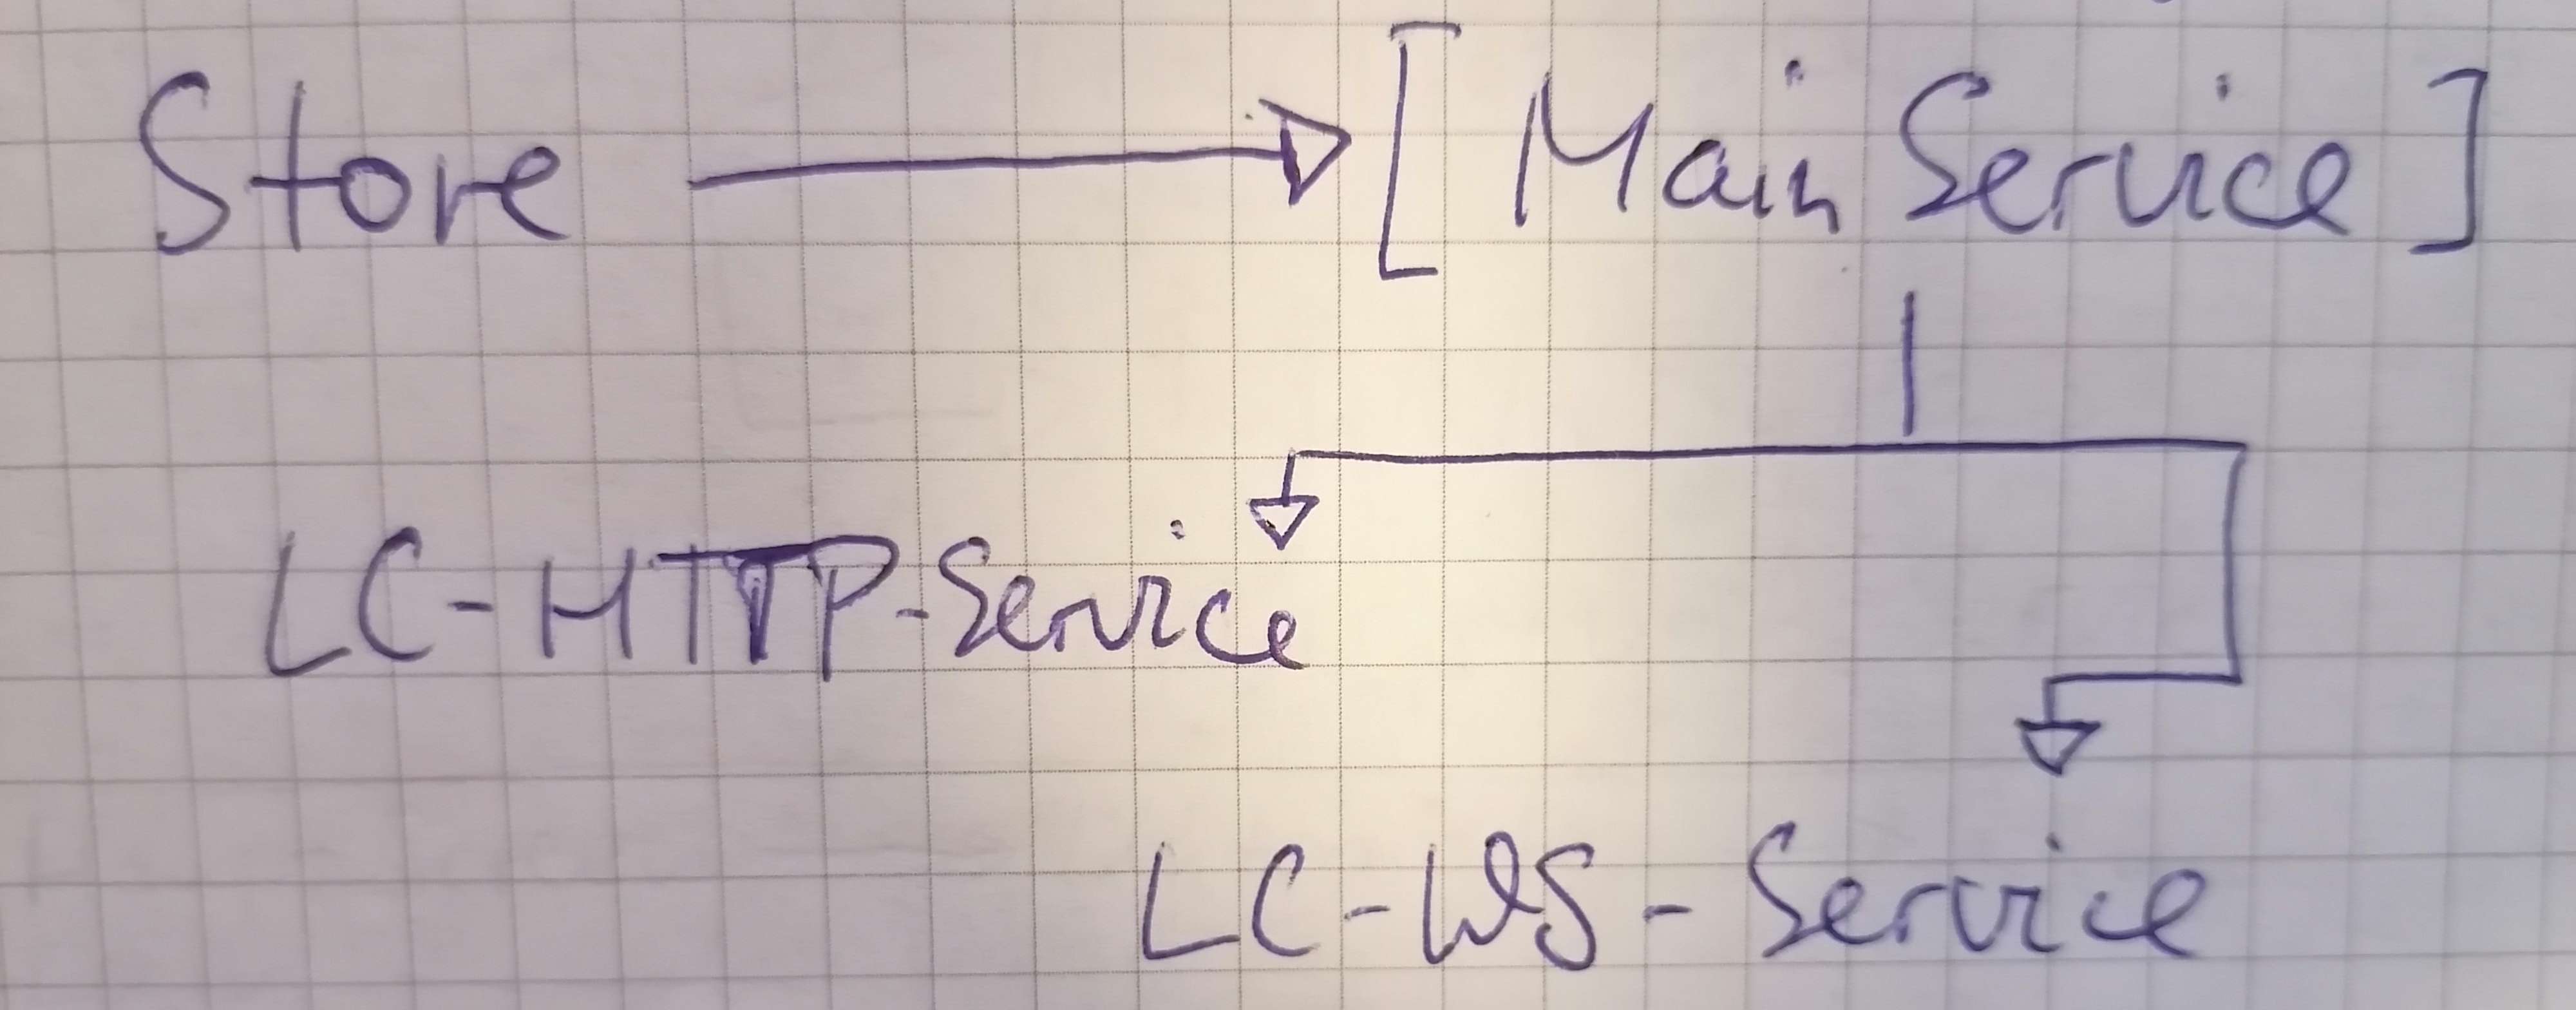 Store [Main Service]
LC-HTTP-Service
LC-WS-Service